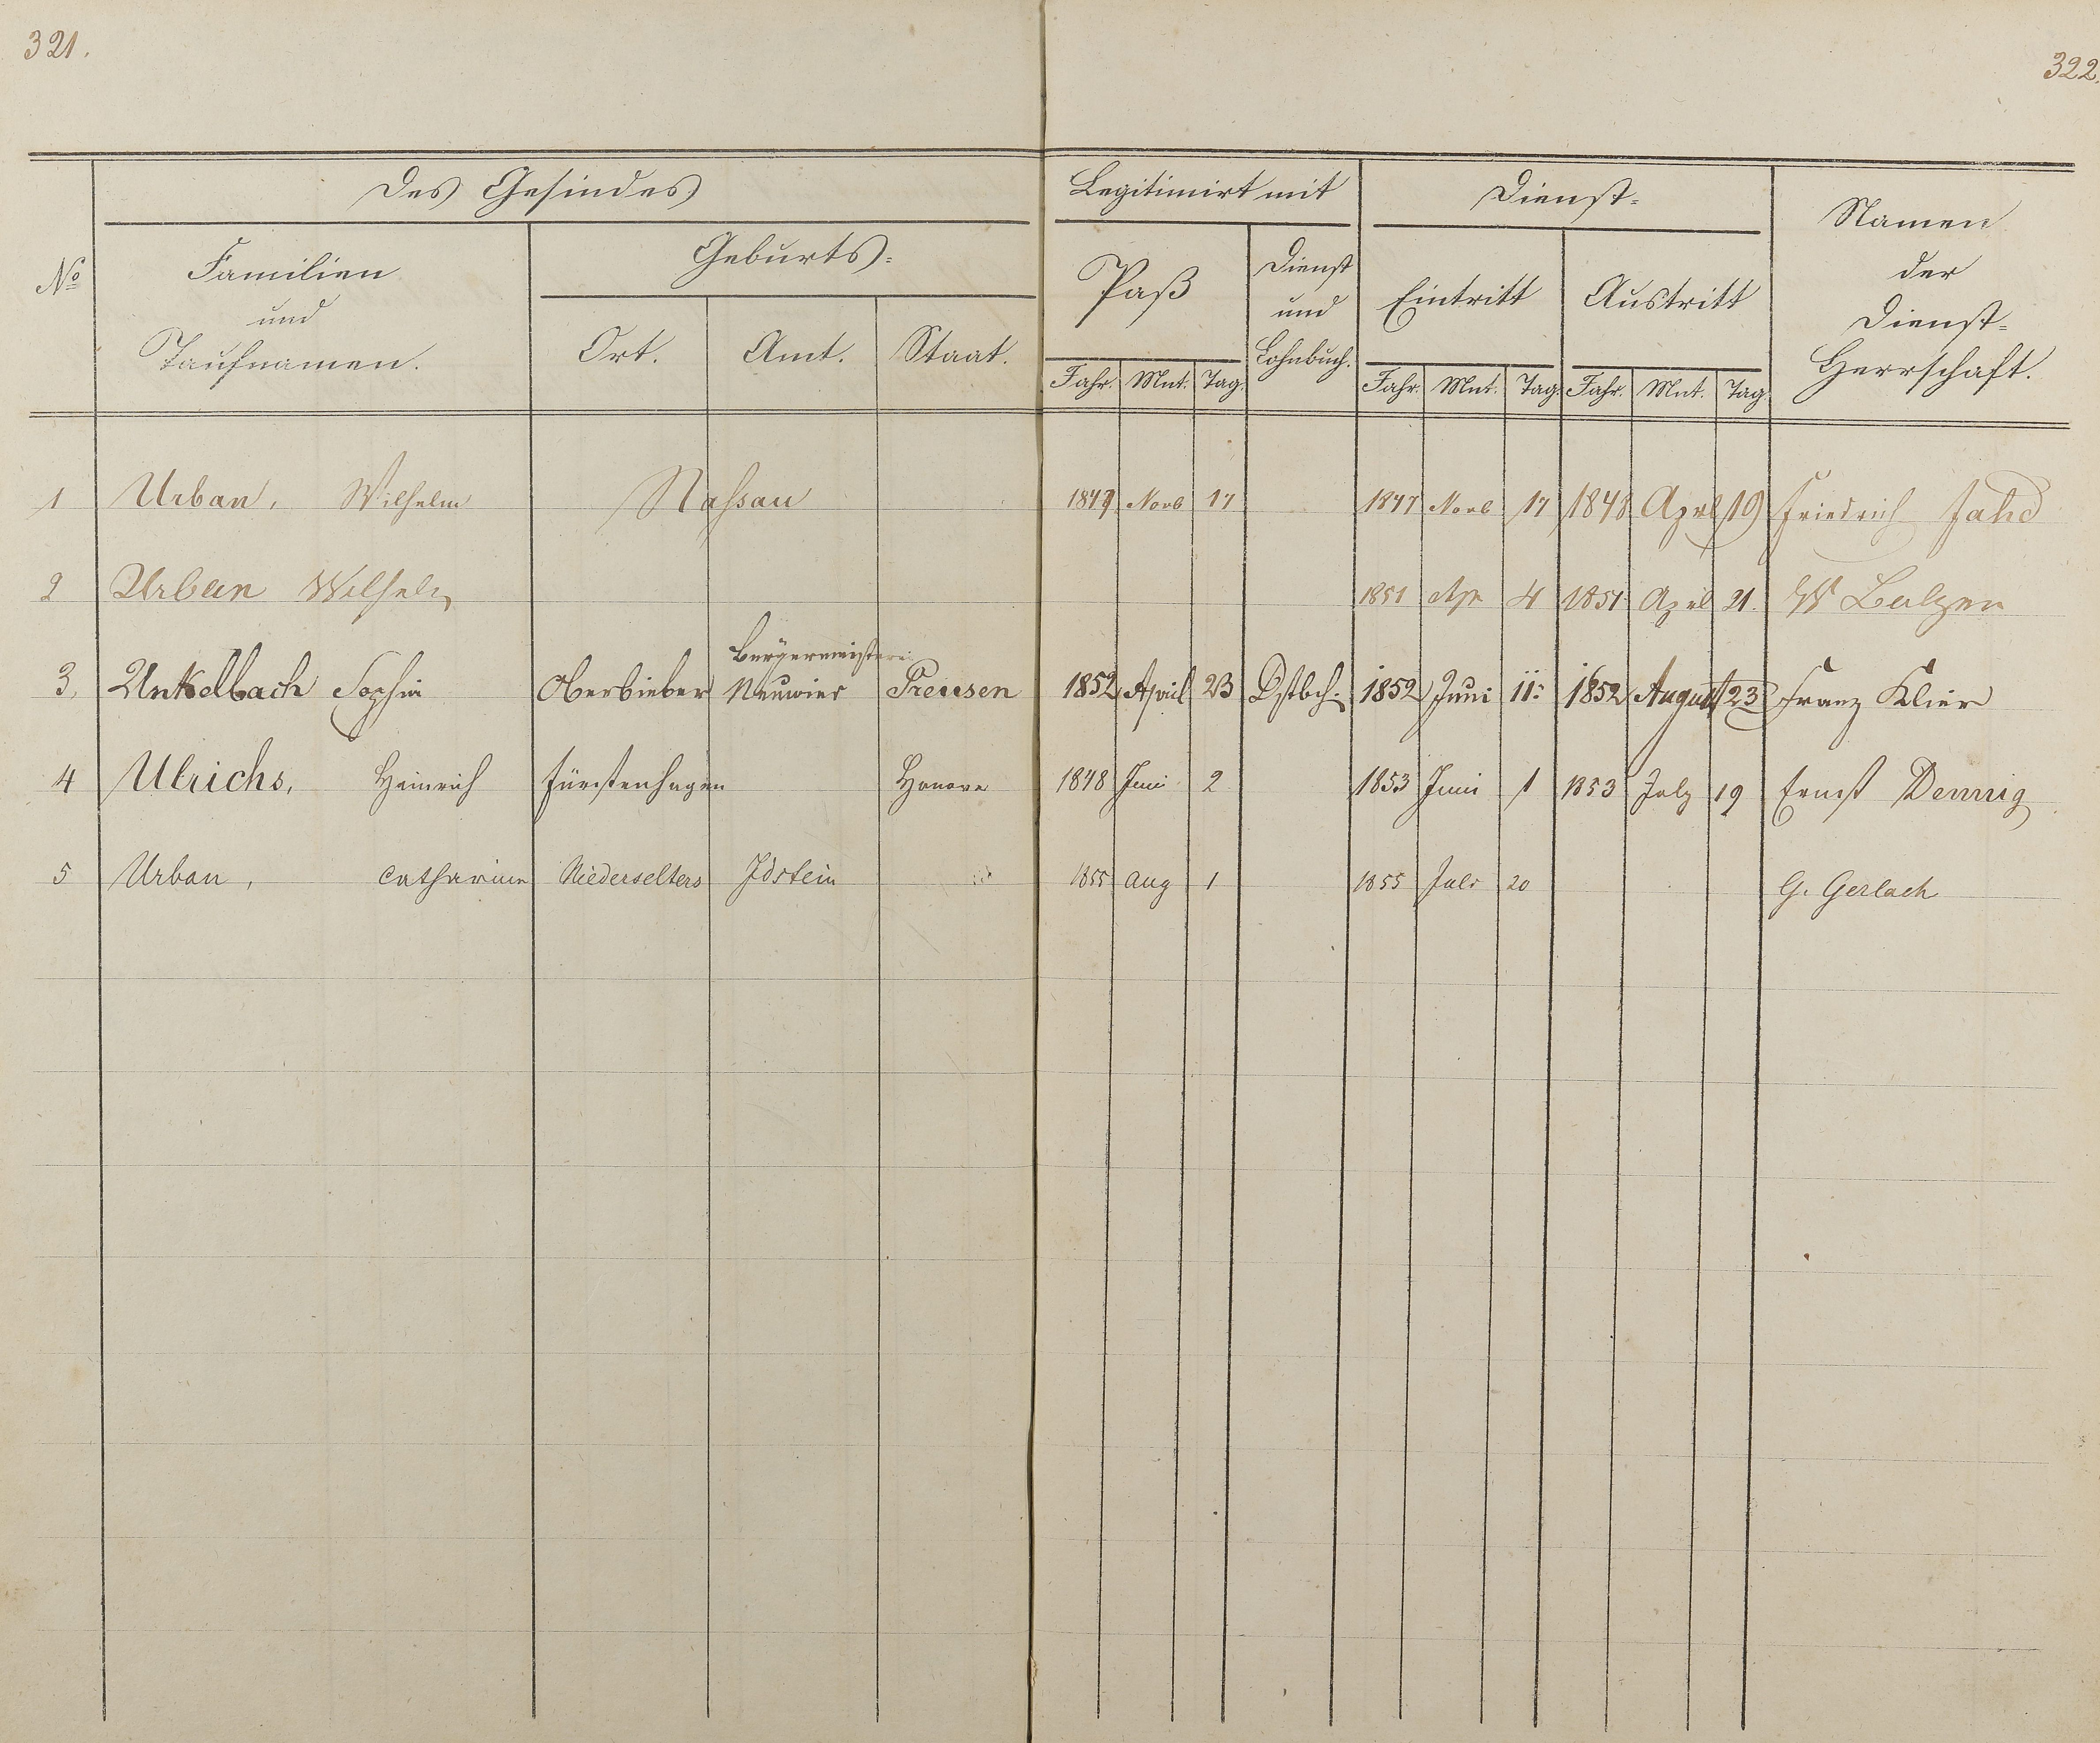 321.
322.
Des Gesindes
Legitimirt mit
Dienst=
Namen der Dienst=Herrschaft.
No
Familien
und
Taufnamen.
Geburts=
Paß
Dienst und Lohnbuch.
Eintritt
Austritt
Ort. Amt. Staat.
Jahr. Mnt. Tag. Jahr. Mnt. Tag. Jahr. Mnt. Tag.
1 Urban, Wilhelm Nassau 1847 Novb 17 1847 Novb 17 1848 Aprl 19 Friedrich
2 Urban Wilhelm 1851 Apr 4 1851 April 21. W Balzer
Bürgermeisterei
3. Unkelbach Sophia Oberbieber Neuwied Preusen 1852 April 23 Dstbch. 1852 Juni 11: 1852 August 23 Franz Klier
4 Ulrichs, Heinrich Fürstenhagen Hanover 1848 Juni 2 1853 Juni 1 1853 July 19 Ernst Dennig
5 Urban, Catharine Niederselters Idstein 1855 Aug 1 1855 Juli 20 G. Gerlach